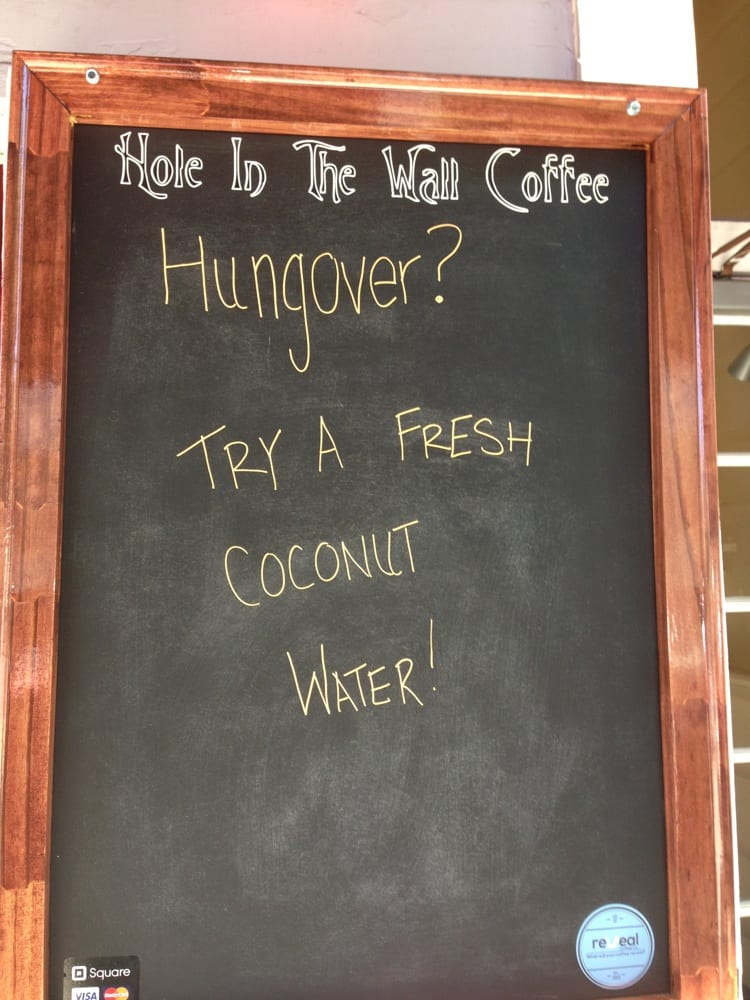 Hole In The Wall Coffee
Hungover?
TRY A FRESH
COCONUT
WATER!
Square
VISA MasterCard